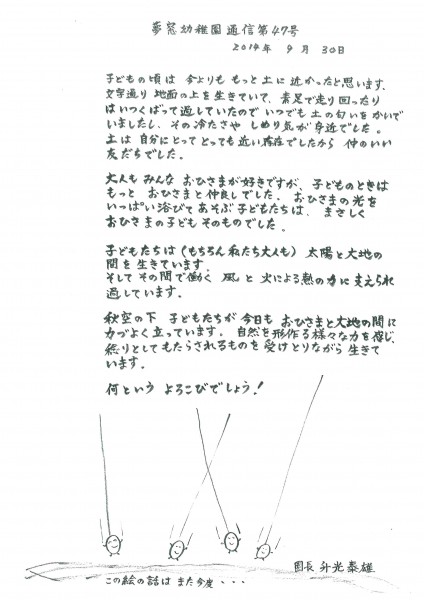 夢窓幼稚園通信第47号
2014年 9月 30日
子どもの頃は 今よりも もっと土に 近かったと思います。
文字通り 地面の上を生きていて、素足で走り回ったり
はいつくばって過していたので いつでも 土の匂いをかいで
いましたし、その冷たさや しめり気が身近でした。
土は 自分にとってとっても近い存在でしたから 仲のいい
友だちでした。
大人も みんな おひさまが好きですが、子どものときは
もっと おひさまと仲良しでした。 おひさまの光を
いっぱい浴びてあそぶ子どもたちは、まさしく
おひさまの子ども そのものでした。
子どもたちは(もちろん私たち大人も) 太陽と大地の
間を生きています。
そして その間で働く 風 と 火による熱の力に支えられ
過しています。
秋空の下 子どもたちが今日も おひさまと大地の間に
力づよく立っています。自然を形作る様々な力を感じ、
稔りとしてもたらされるものを受けとりながら 生きて
います。
何という よろこびでしょう!
園長 升光泰雄
この絵の話は また今度・・・